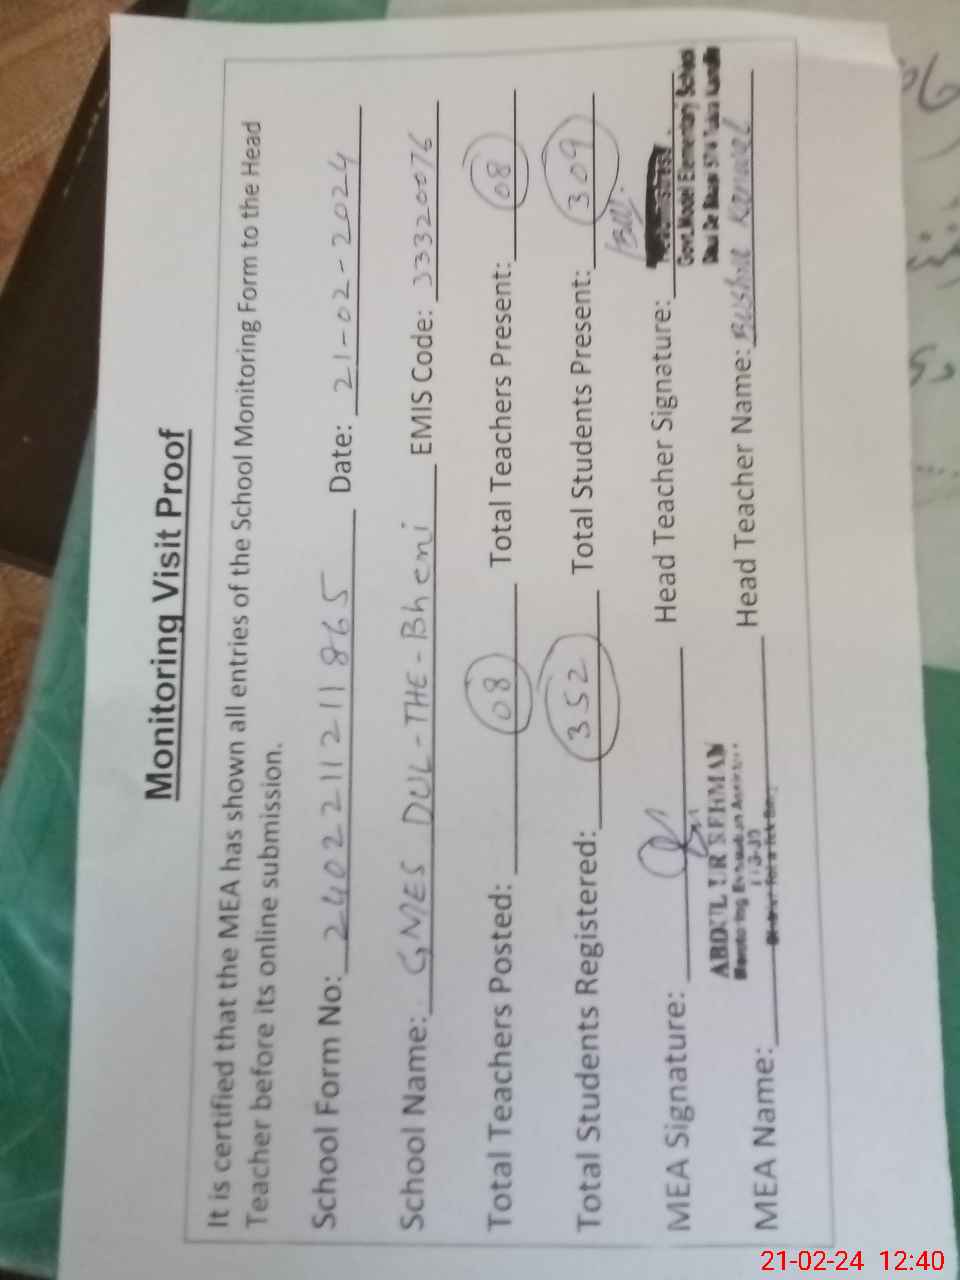 Monitoring Visit Proof
It is certified that the MEA has shown all entries of the School Monitoring Form to the Head
Teacher before its online submission.
School Form No: 2402211211865 Date: 21-02-2024
School Name: GMES DUL-THE-Bheni EMIS Code: 33320076
Total Teachers Posted: 08 Total Teachers Present: 08
Total Students Registered: 352 Total Students Present: 309
MEA Signature: Head Teacher Signature:
Govt. Model Elementary School
ABDUL UR REHMAN
Monitoring Evaluation Assistant
MEA Name: Head Teacher Name: Bushra Kanwal
21-02-24 12:40